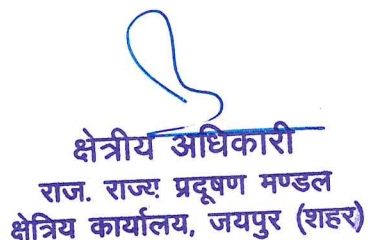 क्षेत्रीय अधिकारी
राज. राज्य प्रदूषण मण्डल
क्षेत्रिय कार्यालय, जयपुर (शहर)